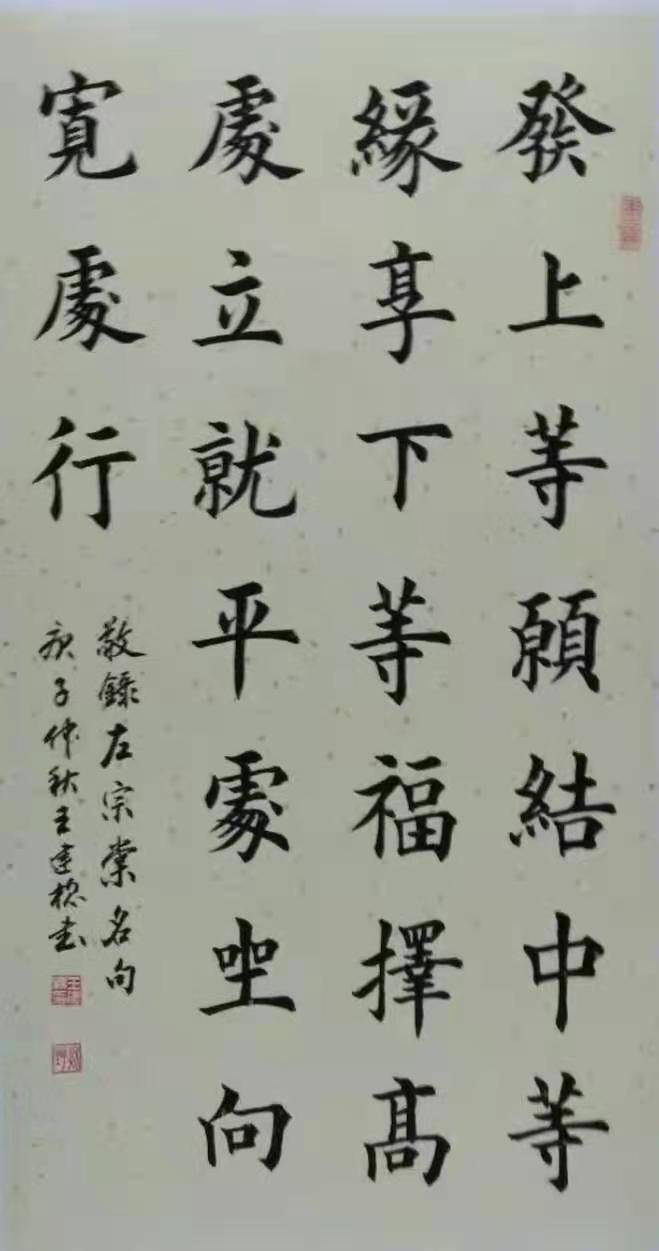 發上等願結中等
緣享下等福擇高
處立就平處坐向
寬處行
敬錄左宗棠名句
庚子仲秋王建樹書